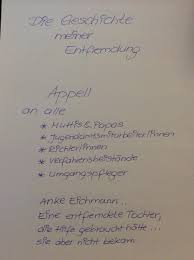 Die Geschichte
meiner
Entfremdung
Appell
an alle
* Muttis & Papas
* Jugendamtsmitarbeiter/innen
* Richter/innen
* Verfahrensbeistände
* Umgangspfleger
Anke Eichmann...
Eine entfremdete Tochter,
die Hilfe gebraucht hätte...
sie aber nicht bekam